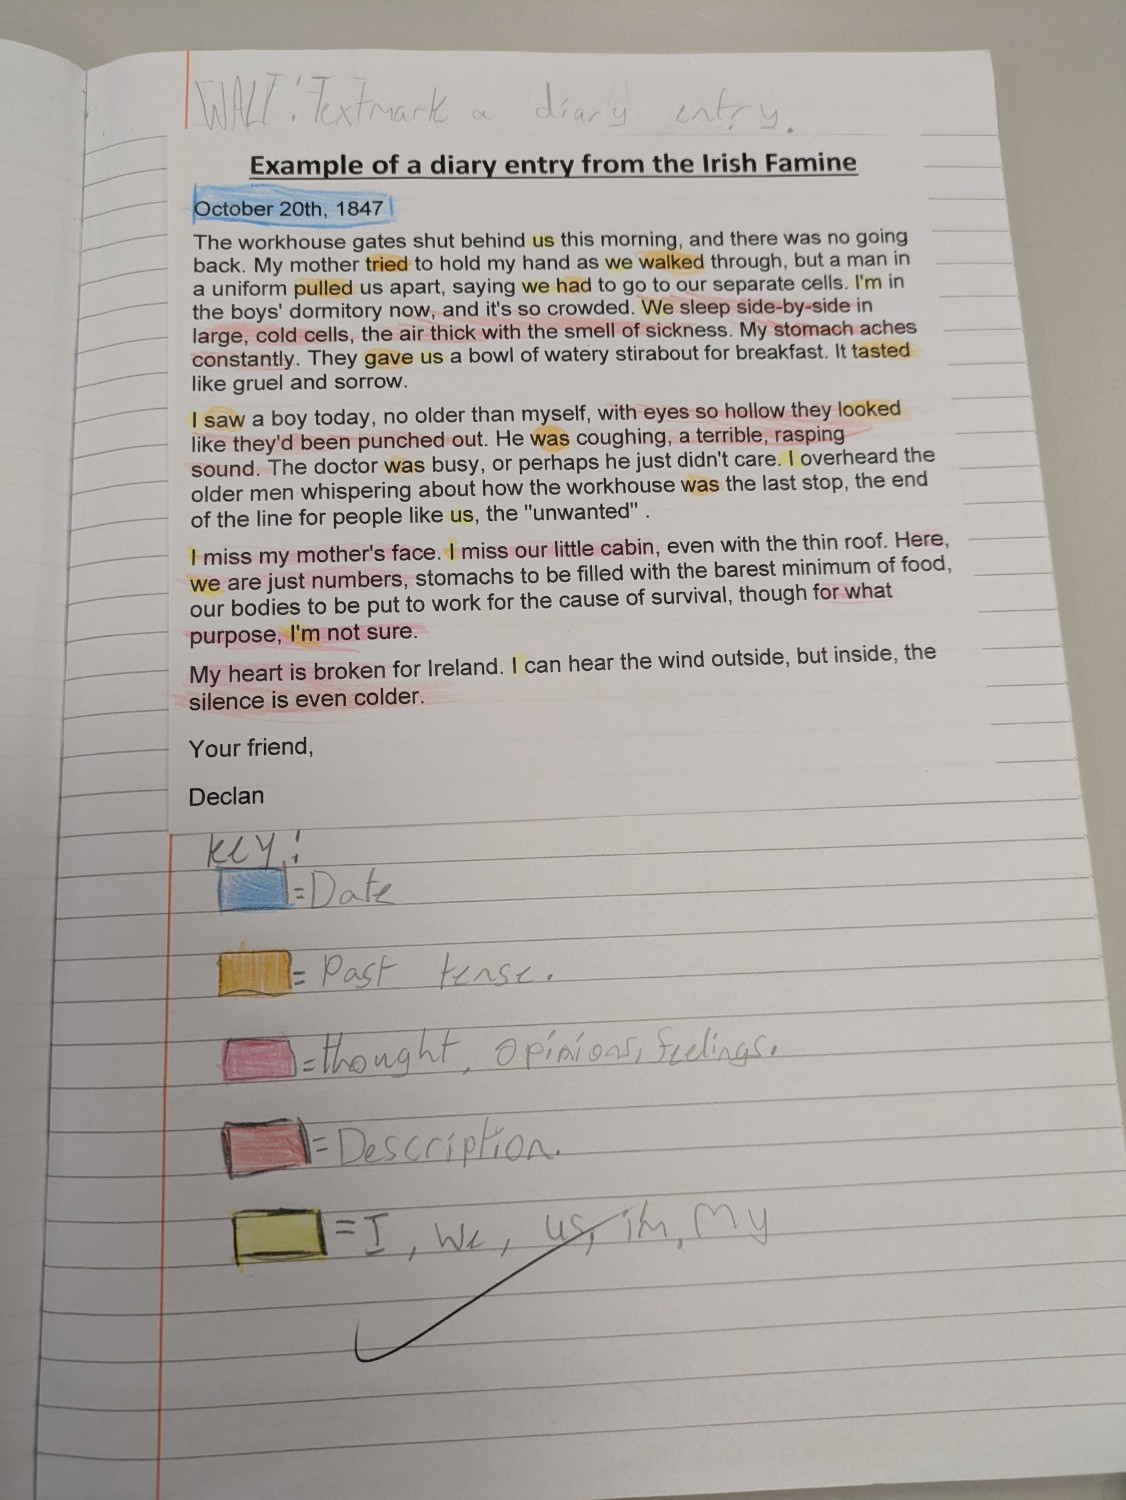 WALT: Textmark a diary entry.
Example of a diary entry from the Irish Famine
October 20th, 1847
The workhouse gates shut behind us this morning, and there was no going
back. My mother tried to hold my hand as we walked through, but a man in
a uniform pulled us apart, saying we had to go to our separate cells. I'm in
the boys' dormitory now, and it's so crowded. We sleep side-by-side in
large, cold cells, the air thick with the smell of sickness. My stomach aches
constantly. They gave us a bowl of watery stirabout for breakfast. It tasted
like gruel and sorrow.
I saw a boy today, no older than myself, with eyes so hollow they looked
like they'd been punched out. He was coughing, a terrible, rasping
sound. The doctor was busy, or perhaps he just didn't care. I overheard the
older men whispering about how the workhouse was the last stop, the end
of the line for people like us, the "unwanted" .
I miss my mother's face. I miss our little cabin, even with the thin roof. Here,
we are just numbers, stomachs to be filled with the barest minimum of food,
our bodies to be put to work for the cause of survival, though for what
purpose, I'm not sure.
My heart is broken for Ireland. I can hear the wind outside, but inside, the
silence is even colder.
Your friend,
Declan
Key:
= Date
= Past tense.
= thought, opinions, feelings.
= Description.
= I, We, us, im, My